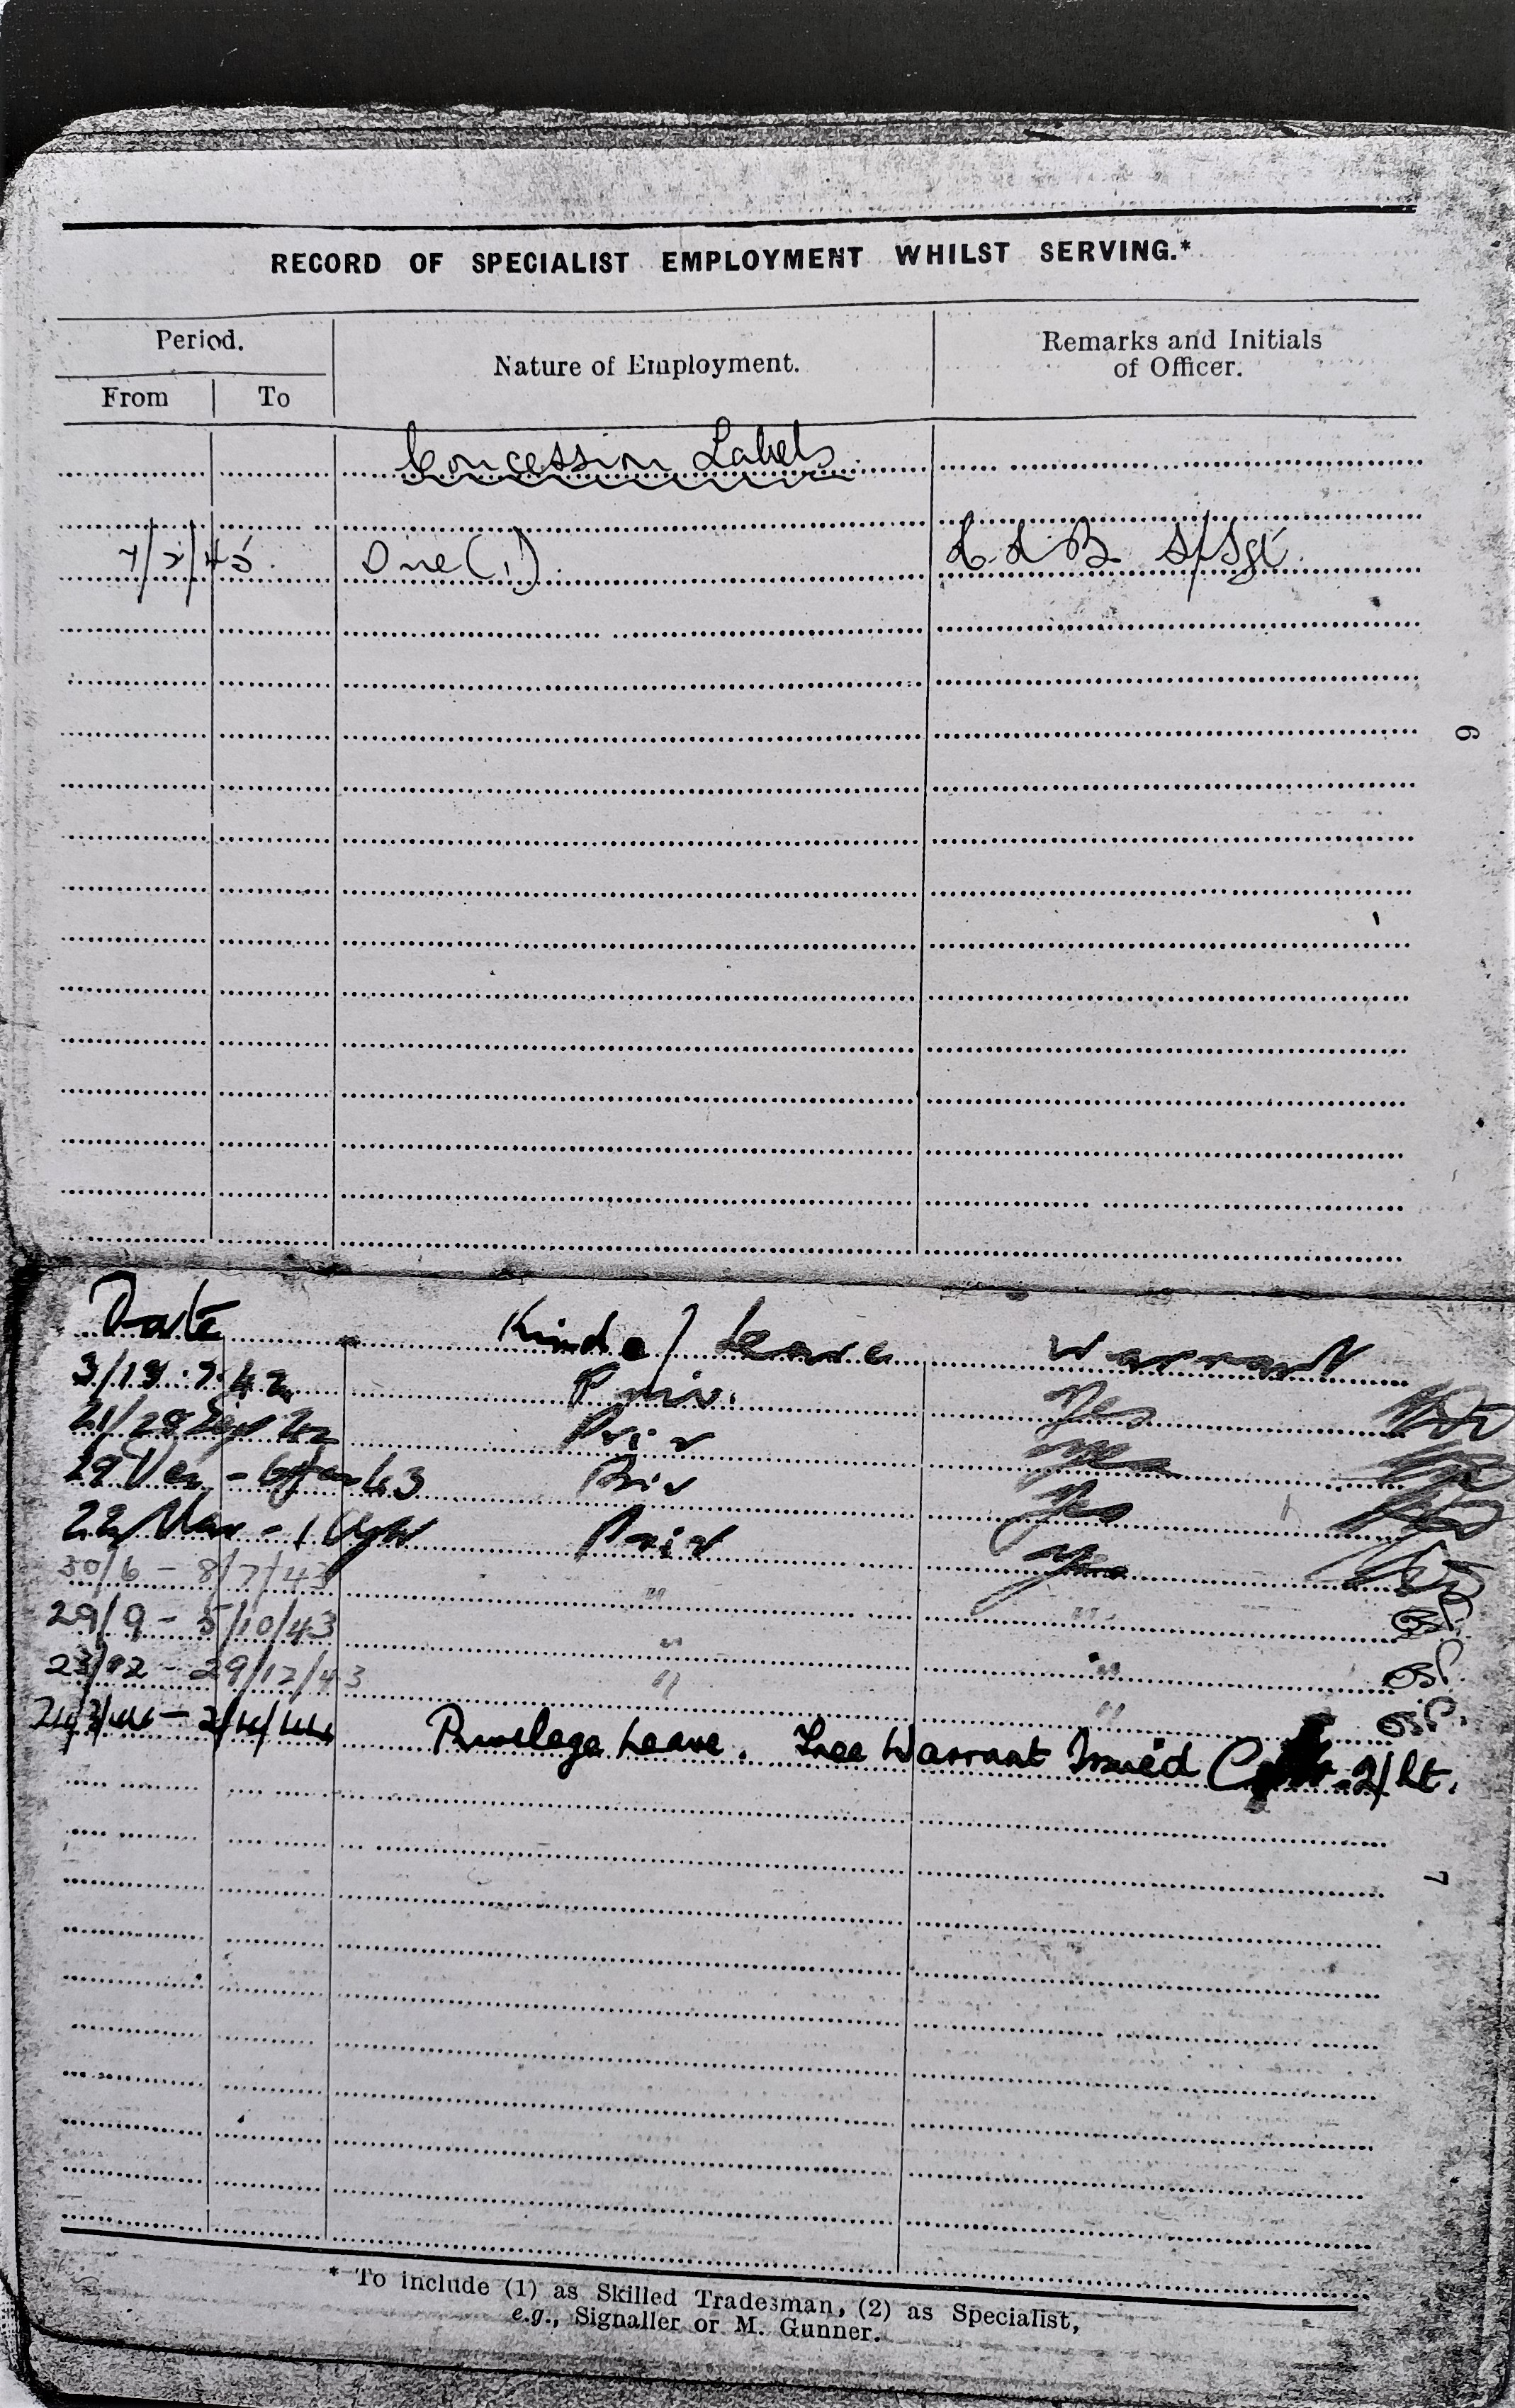 RECORD OF SPECIALIST EMPLOYMENT WHILST SERVING.*
Period. Nature of Employment. Remarks and Initials
of Officer.
From To
Concession Labels
/45. One (1). S/Sgt.
6
Date Kind of Leave Warrant
3/13.7.42 Priv. Yes
21/28 Sep 42 Priv Yes
29 Dec - 6 Jan 43 Priv Yes
22 Mar - 1 Priv Yes
30/6 - 8/7/43 " "
29/9 - 5/10/43 " "
23/12 - 29/12/43 " "
24/3/44 - 2/4/44 Privelege Leave. Free Warrant Issued 2/Lt.
7
* To include (1) as Skilled Tradesman, (2) as Specialist,
e.g., Signaller or M. Gunner.